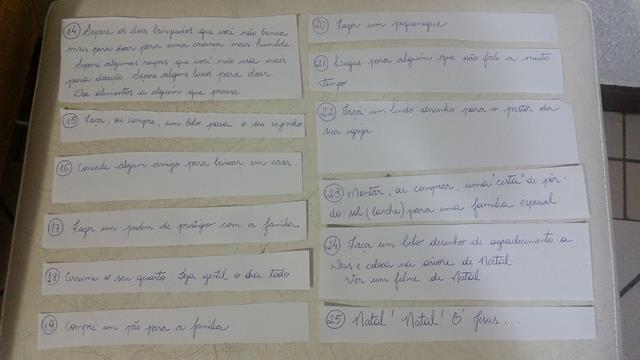 14 Separe os dois brinquedos que você não brinca
mais para doar para uma criança mais humilde
Separe algumas roupas que você não usa mais
para doação Separe alguns livros para doar
Doe alimentos a alguém que precise
15 Faça, ou compre, um bolo para o seu vizinho
16 Convide algum amigo para brincar em casa
17 Fazer um pudim de prestígio com a família
18 Arrume o seu quarto Seja gentil o dia todo
19 Compre um pão para a família
20 Fazer um piquenique
21 Ligue para alguém que não fale a muito
tempo
22 Faça um lindo desenho para o pastor da
sua igreja
23 Montar, ou comprar, uma "cesta" de pôr-
do sol (lanche) para uma família especial
24 Faça um belo desenho de agradecimento a
Deus e coloca na árvore de Natal.
Ver um filme de Natal.
25 Natal! Natal! É Jesus...